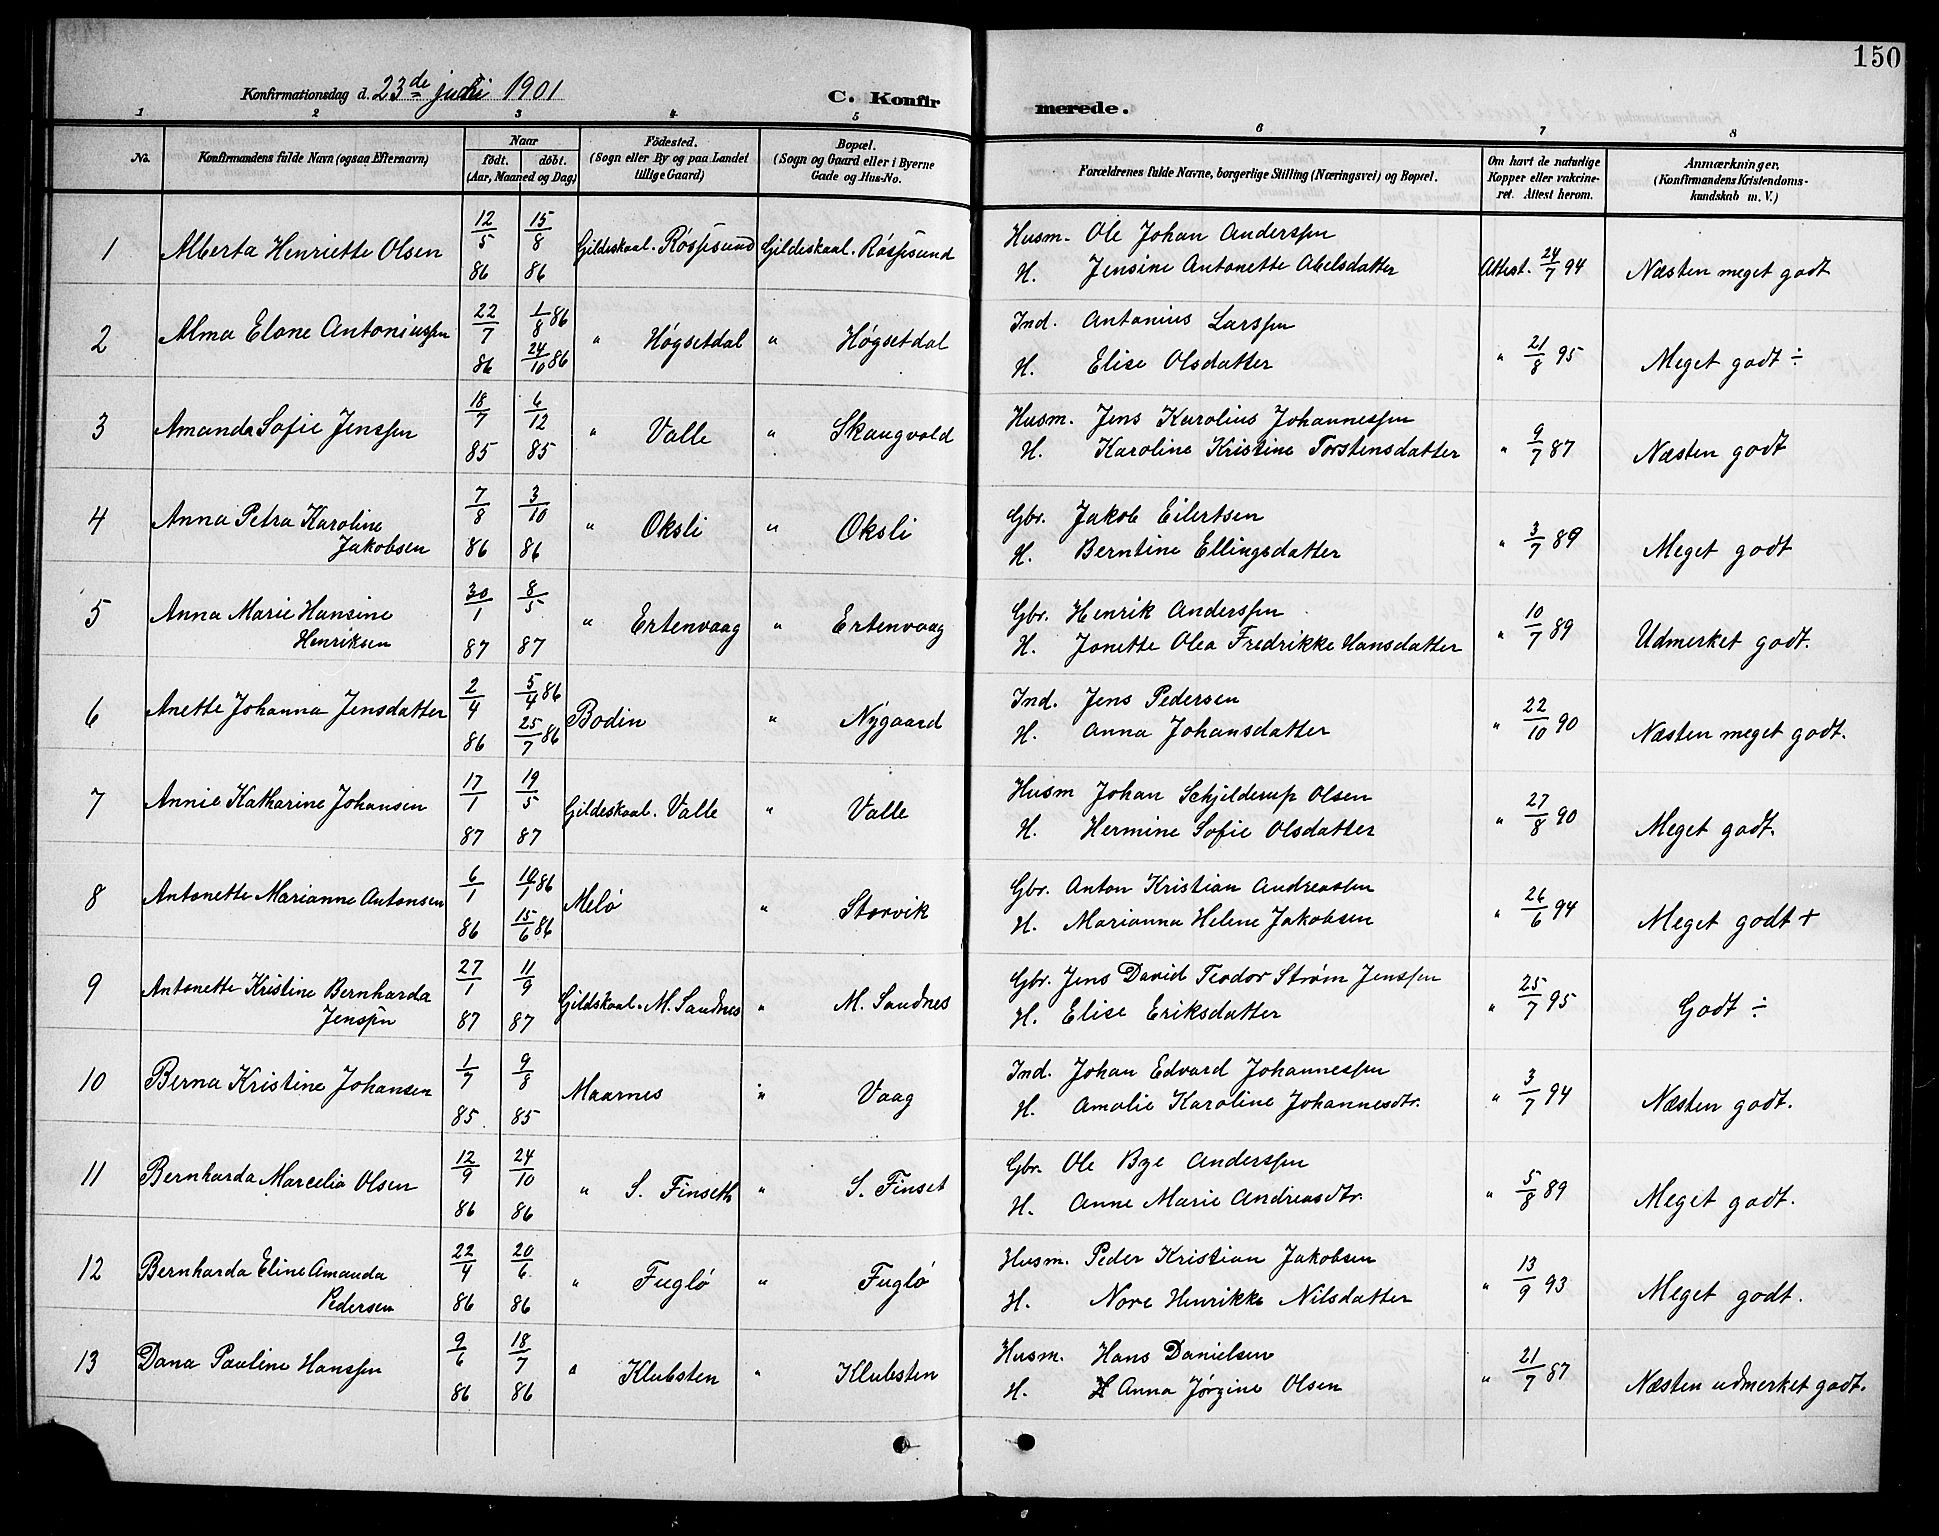 150
Konfirmationsdag d. 23de 1901
C. Konfirmerede.
1 2 3 4 5 6 7 8
No. | Konfirmandens fulde Navn (ogsaa Efternavn) | Naar födt. döbt. (Aar, Maaned og Dag) | Födested. (Sogn eller By og paa Landet tillige Gaard) | Bopæl. (Sogn og Gaard eller i Byerne Gade og Hus-No. | Forældrenes fulde Navne, borgerlige Stilling (Næringsvei) og Bopæl. | Om havt de naturlige Kopper eller vakcineret. Attest herom. | Anmærkninger. (Konfirmandens Kristendomskundskab m. V.)
1 | Alberta Henriette Olsen | 12/5 86 | 15/8 86 | Gildeskaal. Røssesund | Gildeskaal. Røssesund | Husm. Ole Johan Anderssen
H. Jensine Antonette Abelsdatter | Attest. 24/7 94 | Næsten meget godt
2 | Alma Elone Antoniussen | 22/7 86 | 1/8 86 24/10 86 | " Høgsetdal | " Høgsetdal | Ind. Antonius Larssen
H. Elise Olsdatter | " 21/8 95 | Meget godt ÷
3 | Amanda Sofie Jenssen | 18/7 85 | 6/12 85 | " Valle | " Skaugvold | Husm. Jens Karolius Johannessen
H. Karoline Kristine Torstensdatter | " 9/7 87 | Næsten godt
4 | Anna Petra Karoline Jakobsen | 7/8 86 | 3/10 86 | " Oksli | " Oksli | Gbr. Jakob Eilertsen
H. Berntine Ellingsdatter | " 3/7 89 | Meget godt
5 | Anna Marie Hansine Henriksen | 30/1 87 | 8/5 87 | " Ertenvaag | " Ertenvaag | Gbr. Henrik Anderssen
H. Jonette Olea Fredrikke Hansdatter | " 10/7 89 | Udmerket godt.
6 | Anette Johanna Jensdatter | 2/4 86 | 5/4 86 25/7 86 | Bodin | " Nygaard | Ind. Jens Pedersen
H. Anna Johansdatter | " 22/10 90 | Næsten meget godt.
7 | Annie Katharine Johansen | 17/1 87 | 19/5 87 | Gildeskaal. Valle | " Valle | Husm Johan Schjelderup Olsen
H. Hermine Sofie Olsdatter | " 27/8 90 | Meget godt.
8 | Antonette Marianne Antonsen | 6/1 86 | 10/1 86 15/6 86 | Melø | " Storvik | Gbr. Anton Kristian Andreassen
H. Marianna Helene Jakobsen | " 26/6 94 | Meget godt +
9 | Antonette Kristine Bernharda Jenssen | 27/1 87 | 11/9 87 | Gildskaal. M. Sandnes | " M. Sandnes | Gbr. Jens David Teodor Strøm Jenssen
H. Elise Eriksdatter | " 25/7 95 | Godt ÷
10 | Berna Kristine Johansen | 1/7 85 | 9/8 85 | Maarnes | " Vaag | Ind. Johan Edvard Johannessen
H. Amalie Karoline Johannesdtr. | " 3/7 94 | Næsten godt.
11 | Bernharda Marcelia Olsen | 12/9 86 | 24/10 86 | " S. Finseth | " S. Finset | Gbr. Ole Bye Anderssen
H. Anne Marie Andreasdtr. | " 5/8 89 | Meget godt.
12 | Bernharda Eline Amanda Pedersen | 22/4 86 | 20/6 86 | " Fuglø | " Fuglø | Husm. Peder Kristian Jakobsen
H. Nore Henrikke Nilsdatter | " 13/9 93 | Meget godt.
13 | Dana Pauline Hanssen | 9/6 86 | 18/7 86 | " Klubsten | " Klubsten | Husm. Hans Danielsen
H. Anna Jørgine Olsen | " 21/7 87 | Næsten udmerket godt.